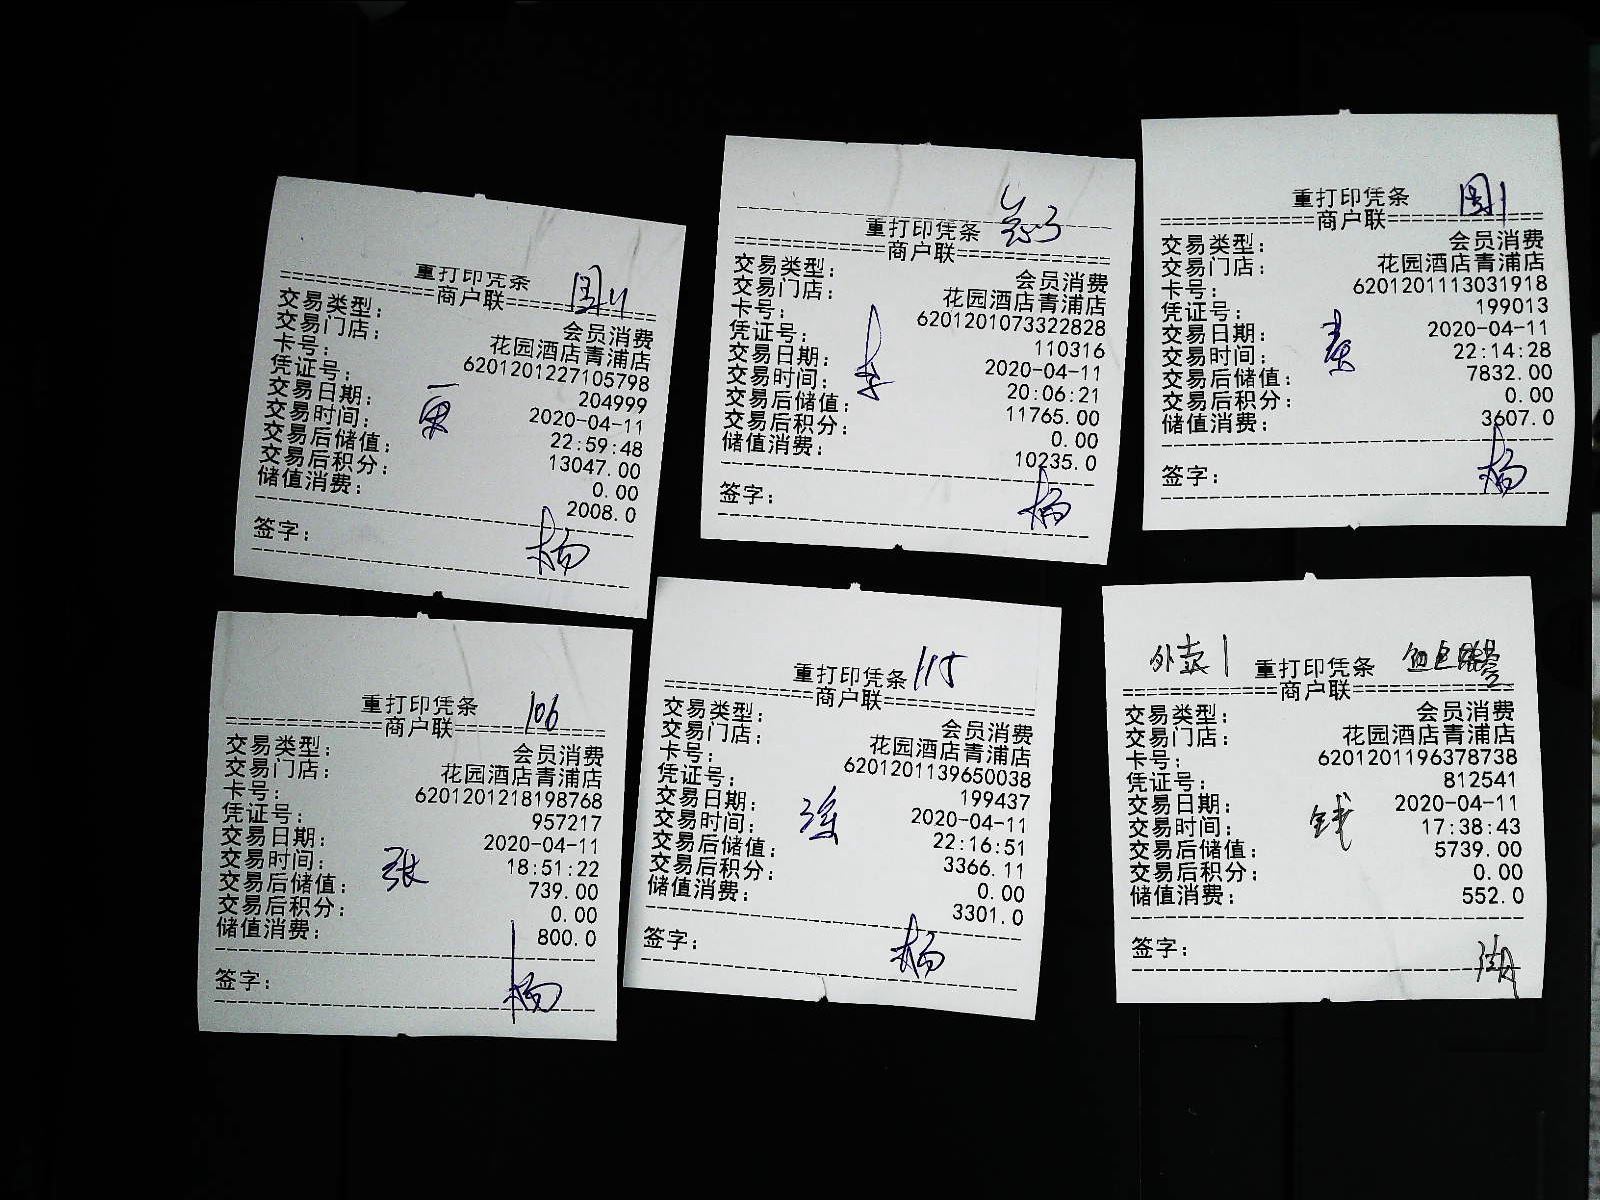 重打印凭条
商户联
交易类型: 会员消费
交易门店: 花园酒店青浦店
卡号: 6201201227105798
凭证号: 204999
交易日期: 2020-04-11
交易时间: 22:59:48
交易后储值: 13047.00
交易后积分: 0.00
储值消费: 2008.0
签字: 杨
重打印凭条
商户联
交易类型: 会员消费
交易门店: 花园酒店青浦店
卡号: 6201201073322828
凭证号: 110316
交易日期: 2020-04-11
交易时间: 20:06:21
交易后储值: 11765.00
交易后积分: 0.00
储值消费: 10235.0
李
签字: 杨
重打印凭条
商户联
交易类型: 会员消费
交易门店: 花园酒店青浦店
卡号: 6201201113031918
凭证号: 199013
交易日期: 2020-04-11
交易时间: 22:14:28
交易后储值: 7832.00
交易后积分: 0.00
储值消费: 3607.0
签字: 杨
重打印凭条 106
商户联
交易类型: 会员消费
交易门店: 花园酒店青浦店
卡号: 6201201218198768
凭证号: 957217
交易日期: 2020-04-11
交易时间: 18:51:22
张
交易后储值: 739.00
交易后积分: 0.00
储值消费: 800.0
签字: 杨
重打印凭条 115
商户联
交易类型: 会员消费
交易门店: 花园酒店青浦店
卡号: 6201201139650038
凭证号: 199437
交易日期: 2020-04-11
交易时间: 22:16:51
交易后储值: 3366.11
交易后积分: 0.00
储值消费: 3301.0
签字: 杨
外卖1 重打印凭条
商户联
交易类型: 会员消费
交易门店: 花园酒店青浦店
卡号: 6201201196378738
凭证号: 812541
交易日期: 2020-04-11
交易时间: 17:38:43
钱
交易后储值: 5739.00
交易后积分: 0.00
储值消费: 552.0
签字: